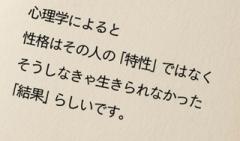 心理学によると
性格はその人の「特性」ではなく
そうしなきゃ生きられなかった
「結果」らしいです。